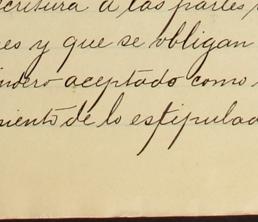 scritura a las partes
es y que se obligan
nero aceptado como
miento de lo estipulad